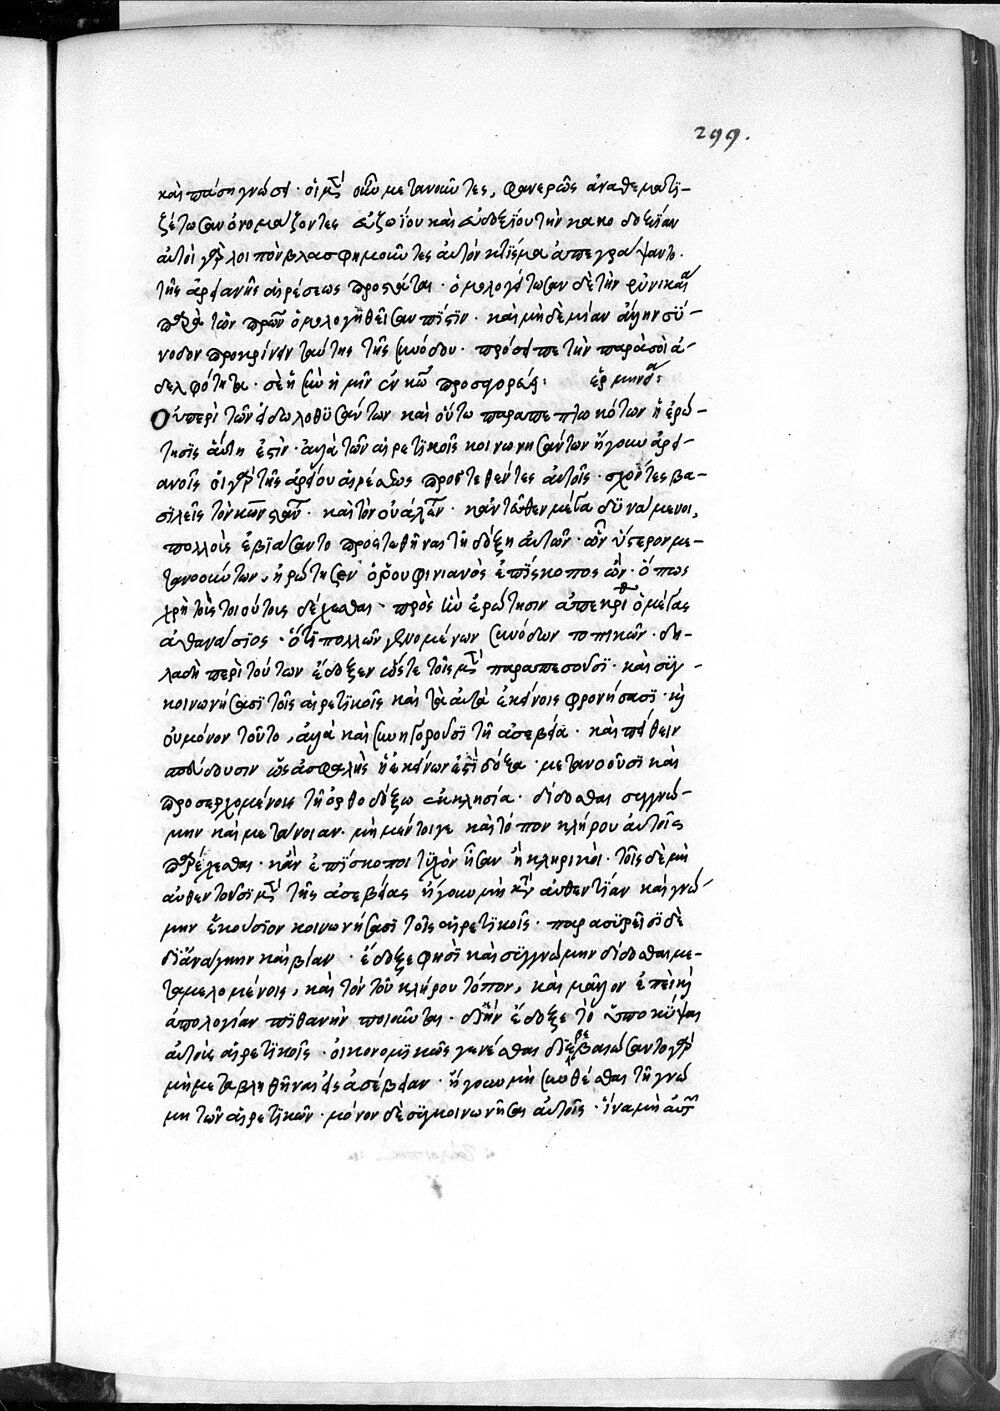 299.
καὶ πάσῃ γνώσει· οἱ μέντοι οὖν μετανοοῦντες, φανερῶς ἀναθεματι-
ζέτωσαν ὀνομάζοντες εὐζωΐου καὶ εὐδοξίου τὴν κακοδοξίαν
αὐτοὶ γὰρ λοιπὸν βλασφημοῦντες αὐτὸν κτίσμα ἀπεγράψαντο.
τῆς ἀρειανῆς αἱρέσεως προστάται· ὁμολογείτωσαν δὲ τὴν ἐν νικαίᾳ
παρὰ τῶν πρῶν ὁμολογηθεῖσαν πίστιν· καὶ μηδεμίαν ἄλλην σύ-
νοδον προκρίνειν ταύτης τῆς συνόδου· πρόσειπε τὴν παρὰ σοὶ ἀ-
δελφότητα· σὲ ἡ σὺν ἡμῖν ἐν κω προσαγορεύει: ἑρμηνεία:
Οὐ περὶ τῶν εἰδωλοθυσάντων καὶ οὕτω παραπεπτωκότων ἡ ἐρώ-
τησις αὕτη ἐστὶν· ἀλλὰ τῶν αἱρετικοῖς κοινωνησάντων ἤγουν ἀρει-
ανοῖς οἱ γὰρ τῆς ἀρείου αἱρέσεως προστεθέντες αὐτοῖς· σχόντες βα-
σιλεῖς τὸν κωνσταν· καὶ τὸν οὐάλεν· κἀντεῦθεν μέγα δυνάμενοι,
πολλοὺς ἐβιάσαντο προστεθῆναι τῇ δόξῃ αὐτῶν· ὧν ὕστερον με-
τανοούντων, ἠρώτησεν ὁ ῥουφινιανὸς ἐπίσκοπος ὢν· ὅπως
χρὴ τοὺς τοιούτους δέχεσθαι· πρὸς ἣν ἐρώτησιν ἀπεκρίθη ὁ μέγας
ἀθανάσιος· ὅτι πολλῶν γενομένων συνόδων τοπικῶν· δη-
λαδὴ περὶ τούτων ἔδοξεν ὥστε τοῖς μὲν παραπεσοῦσι· καὶ συγ-
κοινωνήσασι τοῖς αἱρετικοῖς καὶ τὰ αὐτὰ ἐκείνοις φρονήσασι· καὶ
οὐ μόνον τοῦτο, ἀλλὰ καὶ συνηγοροῦσι τῇ ἀσεβείᾳ· καὶ πείθειν
σπεύδουσιν ὡς ἀσφαλὴς ἡ ἐκείνων ἐστὶ δόξα· μετανοοῦσι καὶ
προσερχομένοις τῇ ὀρθοδόξῳ ἐκκλησίᾳ· δίδοσθαι συγγνώ-
μην καὶ μετάνοιαν· μὴ μέντοιγε καὶ τόπον κλήρου αὐτοῖς
παρέχεσθαι· κἂν ἐπίσκοποι τυχὸν ἦσαν ἢ κληρικοὶ· τοῖς δὲ μὴ
αὐθεντοῦσι μετὰ τῆς ἀσεβείας ἤγουν μὴ κατ' αὐθεντίαν καὶ γνώ-
μην ἑκούσιον κοινωνήσασι τοῖς αἱρετικοῖς· παρασυρεῖσι δὲ
δι' ἀνάγκην καὶ βίαν· ἔδοξε φησὶ καὶ συγγνώμην δίδοσθαι με-
ταμελομένοις, καὶ τὸν τοῦ κλήρου τόπον, καὶ μᾶλλον ἐπειδὴ
ἀπολογίαν πιθανὴν ποιοῦνται· δι' ἣν ἔδοξε τὸ ὑποκύψαι
αὐτοὺς αἱρετικοῖς· οἰκονομικῶς γενέσθαι διεβεβαιώσαντο γὰρ
μὴ μεταβληθῆναι εἰς ἀσέβειαν· ἤγουν μὴ συνθέσθαι τῇ γνώ
μῃ τῶν αἱρετικῶν· μόνον δὲ συγκοινωνῆσαι αὐτοῖς· ἵνα μὴ αὐτοὶ